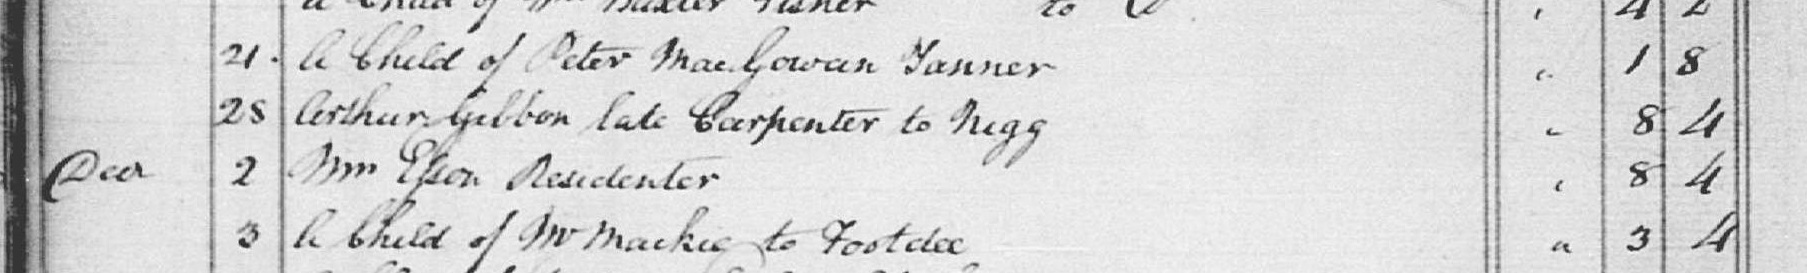 A Child of Wm Baxter Fisher to D 4 2
21. A Child of Peter MacGowan Tanner " 1 8
28 Arthur Gibbon late Carpenter to Nigg " 8 4
Decr 2 Wm Esson Residenter " 8 4
3 A Child of Mr Mackie to Footdee " 3 4